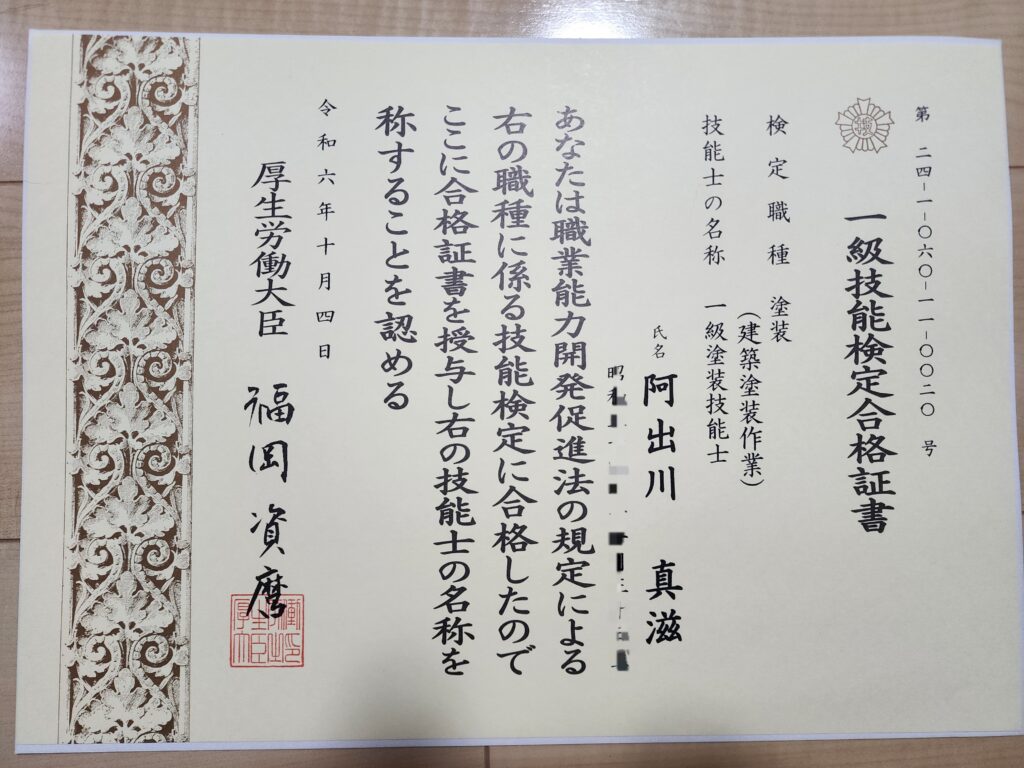 第二四-一-〇六〇-一一-〇〇二〇号
一級技能検定合格証書
検定職種 塗装
(建築塗装作業)
技能士の名称 一級塗装技能士
氏名 阿出川 真滋
昭
あなたは職業能力開発促進法の規定による
右の職種に係る技能検定に合格したので
ここに合格証書を授与し右の技能士の名称を
称することを認める
令和六年十月四日
厚生労働大臣 福岡資麿